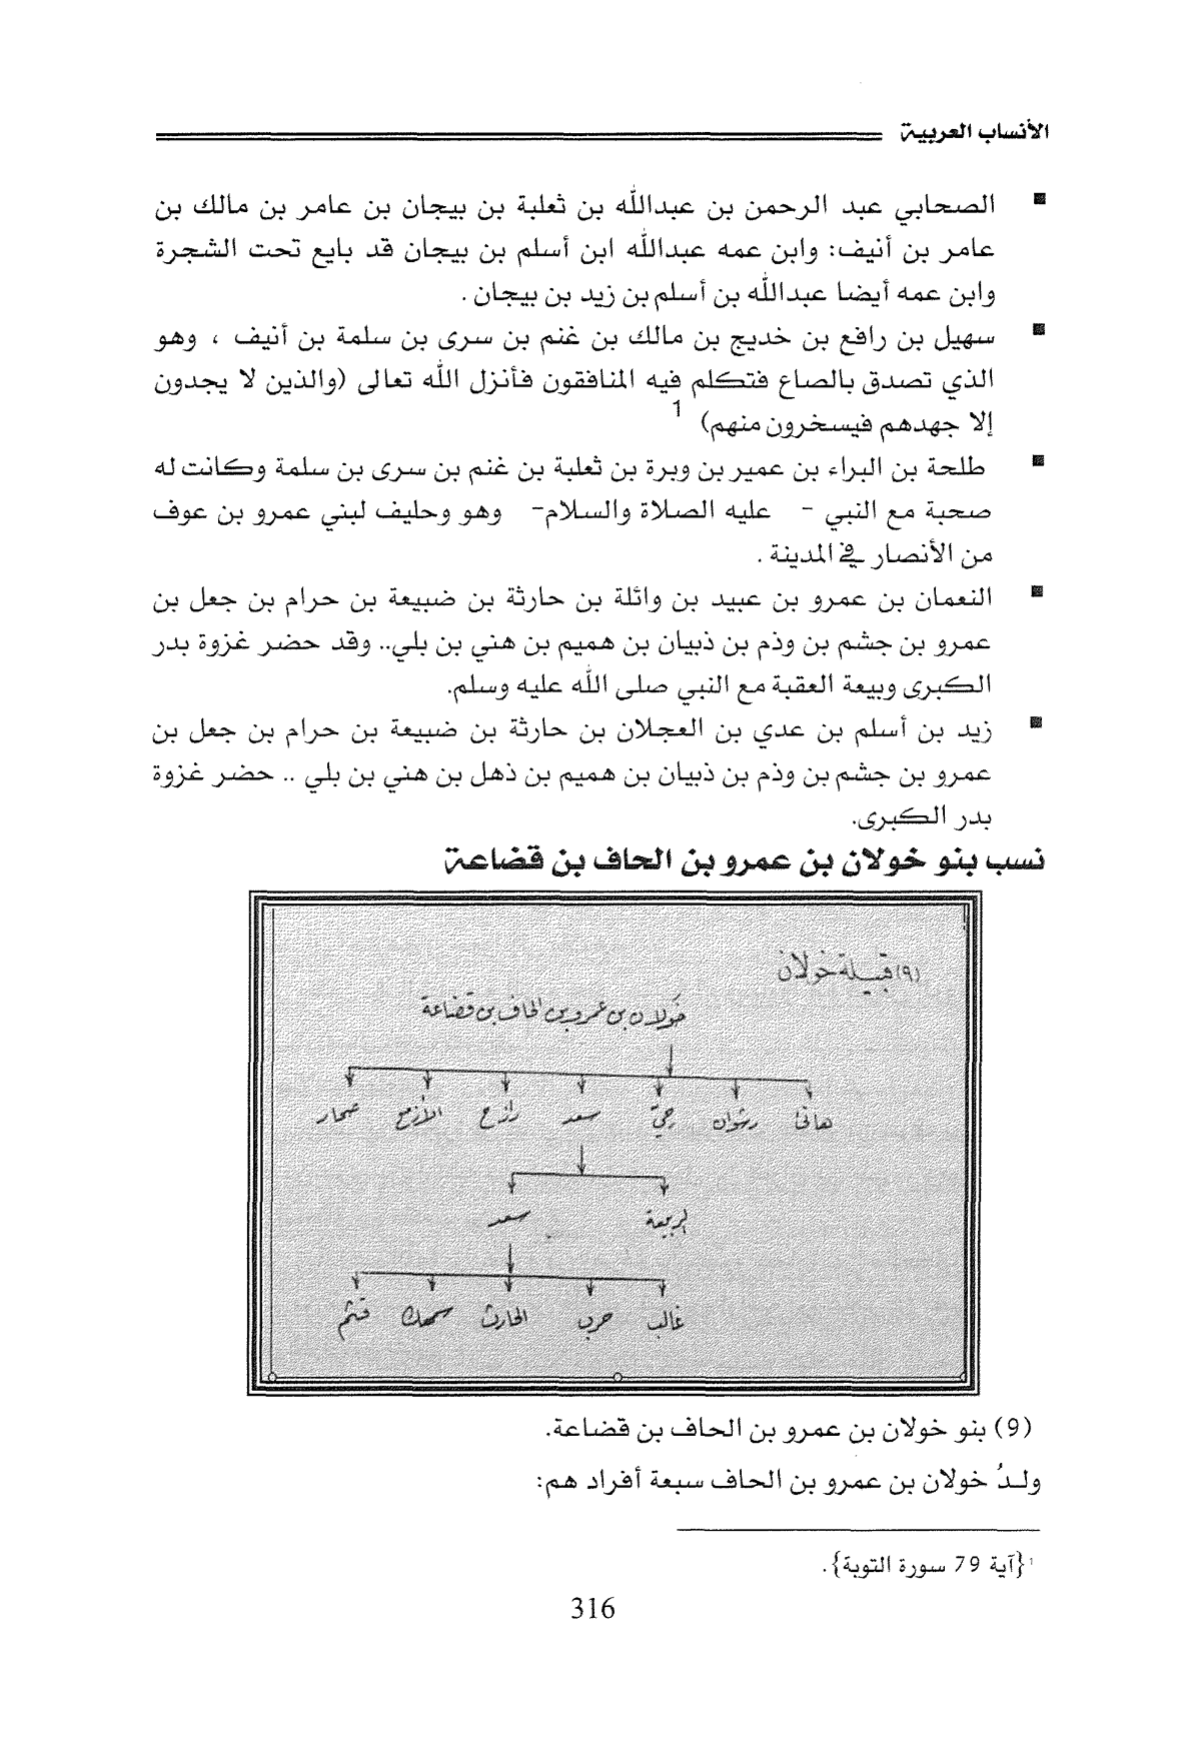 الأنساب العربية
▪ الصحابي عبد الرحمن بن عبدالله بن ثعلبة بن بيجان بن عامر بن مالك بن
عامر بن أنيف: وابن عمه عبدالله ابن أسلم بن بيجان قد بايع تحت الشجرة
وابن عمه أيضا عبدالله بن أسلم بن زيد بن بيجان .
▪ سهيل بن رافع بن خديج بن مالك بن غنم بن سرى بن سلمة بن أنيف ، وهو
الذي تصدق بالصاع فتكلم فيه المنافقون فأنزل الله تعالى (والذين لا يجدون
إلا جهدهم فيسخرون منهم) 1
▪ طلحة بن البراء بن عمير بن وبرة بن ثعلبة بن غنم بن سرى بن سلمة وكانت له
صحبة مع النبي - عليه الصلاة والسلام- وهو وحليف لبني عمرو بن عوف
من الأنصار في المدينة .
▪ النعمان بن عمرو بن عبيد بن وائلة بن حارثة بن ضبيعة بن حرام بن جعل بن
عمرو بن جشم بن وذم بن ذبيان بن هميم بن هني بن بلي.. وقد حضر غزوة بدر
الكبرى وبيعة العقبة مع النبي صلى الله عليه وسلم.
▪ زيد بن أسلم بن عدي بن العجلان بن حارثة بن ضبيعة بن حرام بن جعل بن
عمرو بن جشم بن وذم بن ذبيان بن هميم بن ذهل بن هني بن بلي .. حضر غزوة
بدر الكبرى.
نسب بنو خولان بن عمرو بن الحاف بن قضاعة
(٩) قبيلة خولان
خولان بن عمرو بن الحاف بن قضاعة
هانئ رشوان حيّ سعد رازح الأزمع صحار
الربيعة سعد
غالب حرب الحارث سمعك قثم
(9) بنو خولان بن عمرو بن الحاف بن قضاعة.
ولدُ خولان بن عمرو بن الحاف سبعة أفراد هم:
1 {آية 79 سورة التوبة}.
316